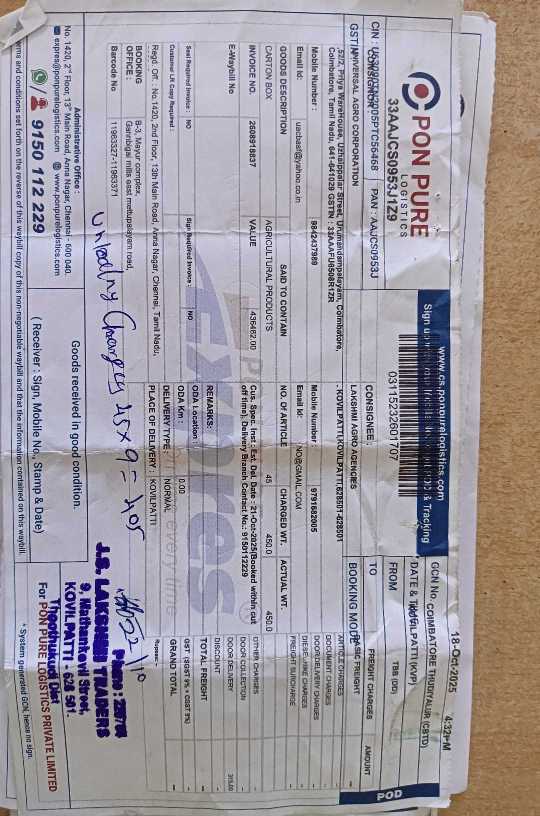 PON PURE
LOGISTICS
33AAJCS0953J1Z9
www.cs.ponpurelogistics.com
Sign up with & Tracking
031152332601707
GCN No.
DATE & TIME
18-Oct-2025 4:32PM
FROM
COIMBATORE THUDIYALUR (CBTD)
TO
KOVILPATTI (KVP)
BOOKING MODE
TBB (DD)
POD
PAN : AAJCS0953J
CONSIGNOR
GSTIN
UNIVERSAL AGRO CORPORATION
,52/2, Priya WareHouse, Uzhaippalar Street, Urumandampalayam, Coimbatore,
Coimbatore, Tamil Nadu, 641-641029 GSTIN : 33AAAFU6508R1ZR
Mobile Number : 9842437989
Email Id: uacbasf@yahoo.co.in
CONSIGNEE :
LAKSHMI AGRO AGENCIES
, KOVILPATTI,KOVILPATTI,628501-628501
Mobile Number : 9791682005
Email Id: NO@GMAIL.COM
GOODS DESCRIPTION SAID TO CONTAIN NO. OF ARTICLE CHARGED WT. ACTUAL WT.
CARTON BOX AGRICULTURAL PRODUCTS 45 450.0 450.0
INVOICE NO. 2508916837 VALUE 436462.00
E-Waybill No
Cus. Spec. Inst : Ex. Del. Date : 21-Oct-2025(Booked within cut
off time), Delivery Branch Contact No.: 9150112229
REMARKS:
ODA Location :
ODA Km : 0.00
DELIVERY TYPE : NORMAL
PLACE OF DELIVERY : KOVILPATTI
Seal Required Invoice : NO
Sign Required Invoice : NO
Customer LR Copy Required :
Regd. Off. : No.1420, 2nd Floor, 13th Main Road, Anna Nagar, Chennai, Tamil Nadu,
BOOKING
OFFICE :
B-3, Mayur complex,
Gannbigai mills east mettupalayam road,
Barcode No 11963327-11963371
FREIGHT CHARGES AMOUNT
BASIC FREIGHT -
ARTICLE CHARGES -
DOCUMENT CHARGES -
DOOR DELIVERY CHARGES -
DIESEL HIKE CHARGES -
FREIGHT SURCHARGE -
OTHER CHARGES -
DOOR COLLECTION -
DOOR DELIVERY 315.00
DISCOUNT -
TOTAL FREIGHT -
GST (SGST 9% + CGST 9%) -
GRAND TOTAL -
Rupees:
unloading Charges 45 x 9 = 405
22/10
J.S. LAKSHMI TRADERS
9, Mathankovil Street,
KOVILPATTI - 628 501.
Thoothukudi Dist
Administrative Office :
No. 1420, 2nd Floor, 13th Main Road, Anna Nagar, Chennai - 600 040.
expres@ponpurelogistics.com www.ponpurelogistics.com
9150 112 229
Goods received in good condition.
( Receiver : Sign, Mobile No., Stamp & Date)
For PON PURE LOGISTICS PRIVATE LIMITED
* System generated GCN, hence no sign.
terms and conditions set forth on the reverse of this waybill copy of this non-negotiable waybill and that the information contained on this waybill